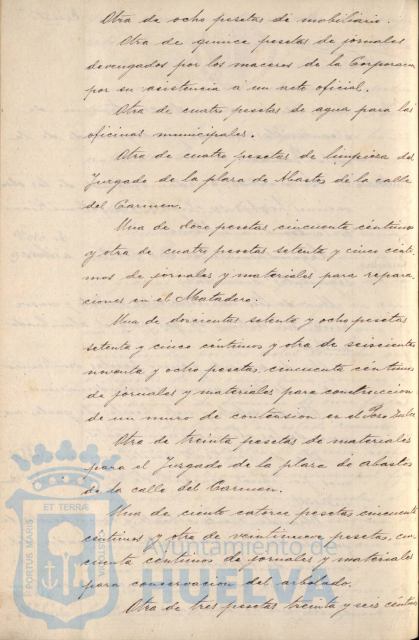 Otra de ocho pesetas de mobiliario.
Otra de quince pesetas de jornales
devengados por los maceros de la Corporacn
por su asistencia á un acto oficial.
Otra de cuatro pesetas de agua para las
oficinas municipales.
Otra de cuatro pesetas de limpieza del
Juzgado de la plaza de Abastos de la calle
del Carmen.
Una de doce pesetas cincuenta céntimos
y otra de cuatro pesetas setenta y cinco cénti-
mos de jornales y materiales para repara-
ciones en el Matadero.
Una de doscientas setenta y ocho pesetas
setenta y cinco céntimos y otra de seiscientas
noventa y ocho pesetas, cincuenta céntimos
de jornales y materiales para construccion
de un muro de contension en el
Otra de treinta pesetas de materiales
para el Juzgado de la plaza de abastos
de la calle del Carmen.
Una de ciento catorce pesetas cincuenta
céntimos y otra de veintinueve pesetas, cin-
cuenta céntimos de jornales y materiales
para conservacion del arbolado.
Otra de tres pesetas treinta y seis cénti
PORTUS MARIS
ET TERRÆ
CUSTODIA
Ayuntamiento de
HUELVA